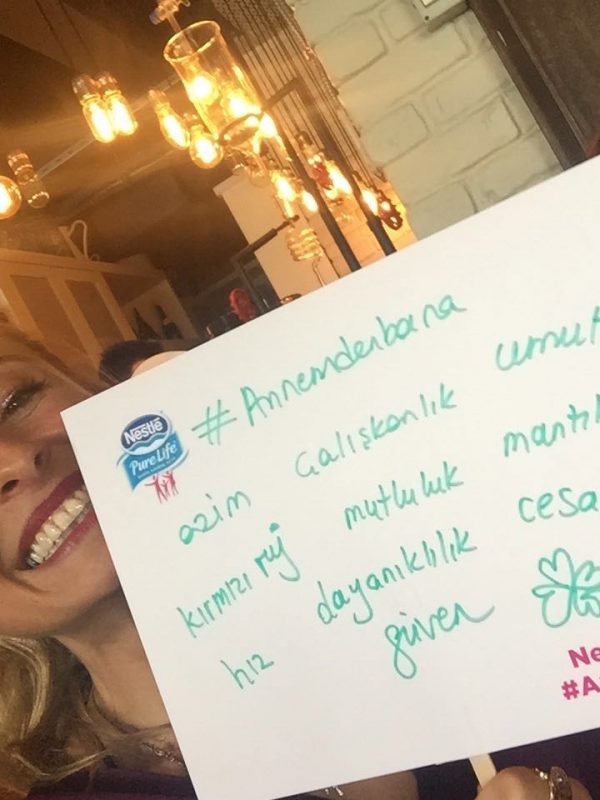 #Annemdenbana
Nestlé
Pure Life
azim çalışkanlık umut
kırmızı ruj mutluluk mantık
hız dayanıklılık cesa
güven
Ne
#A